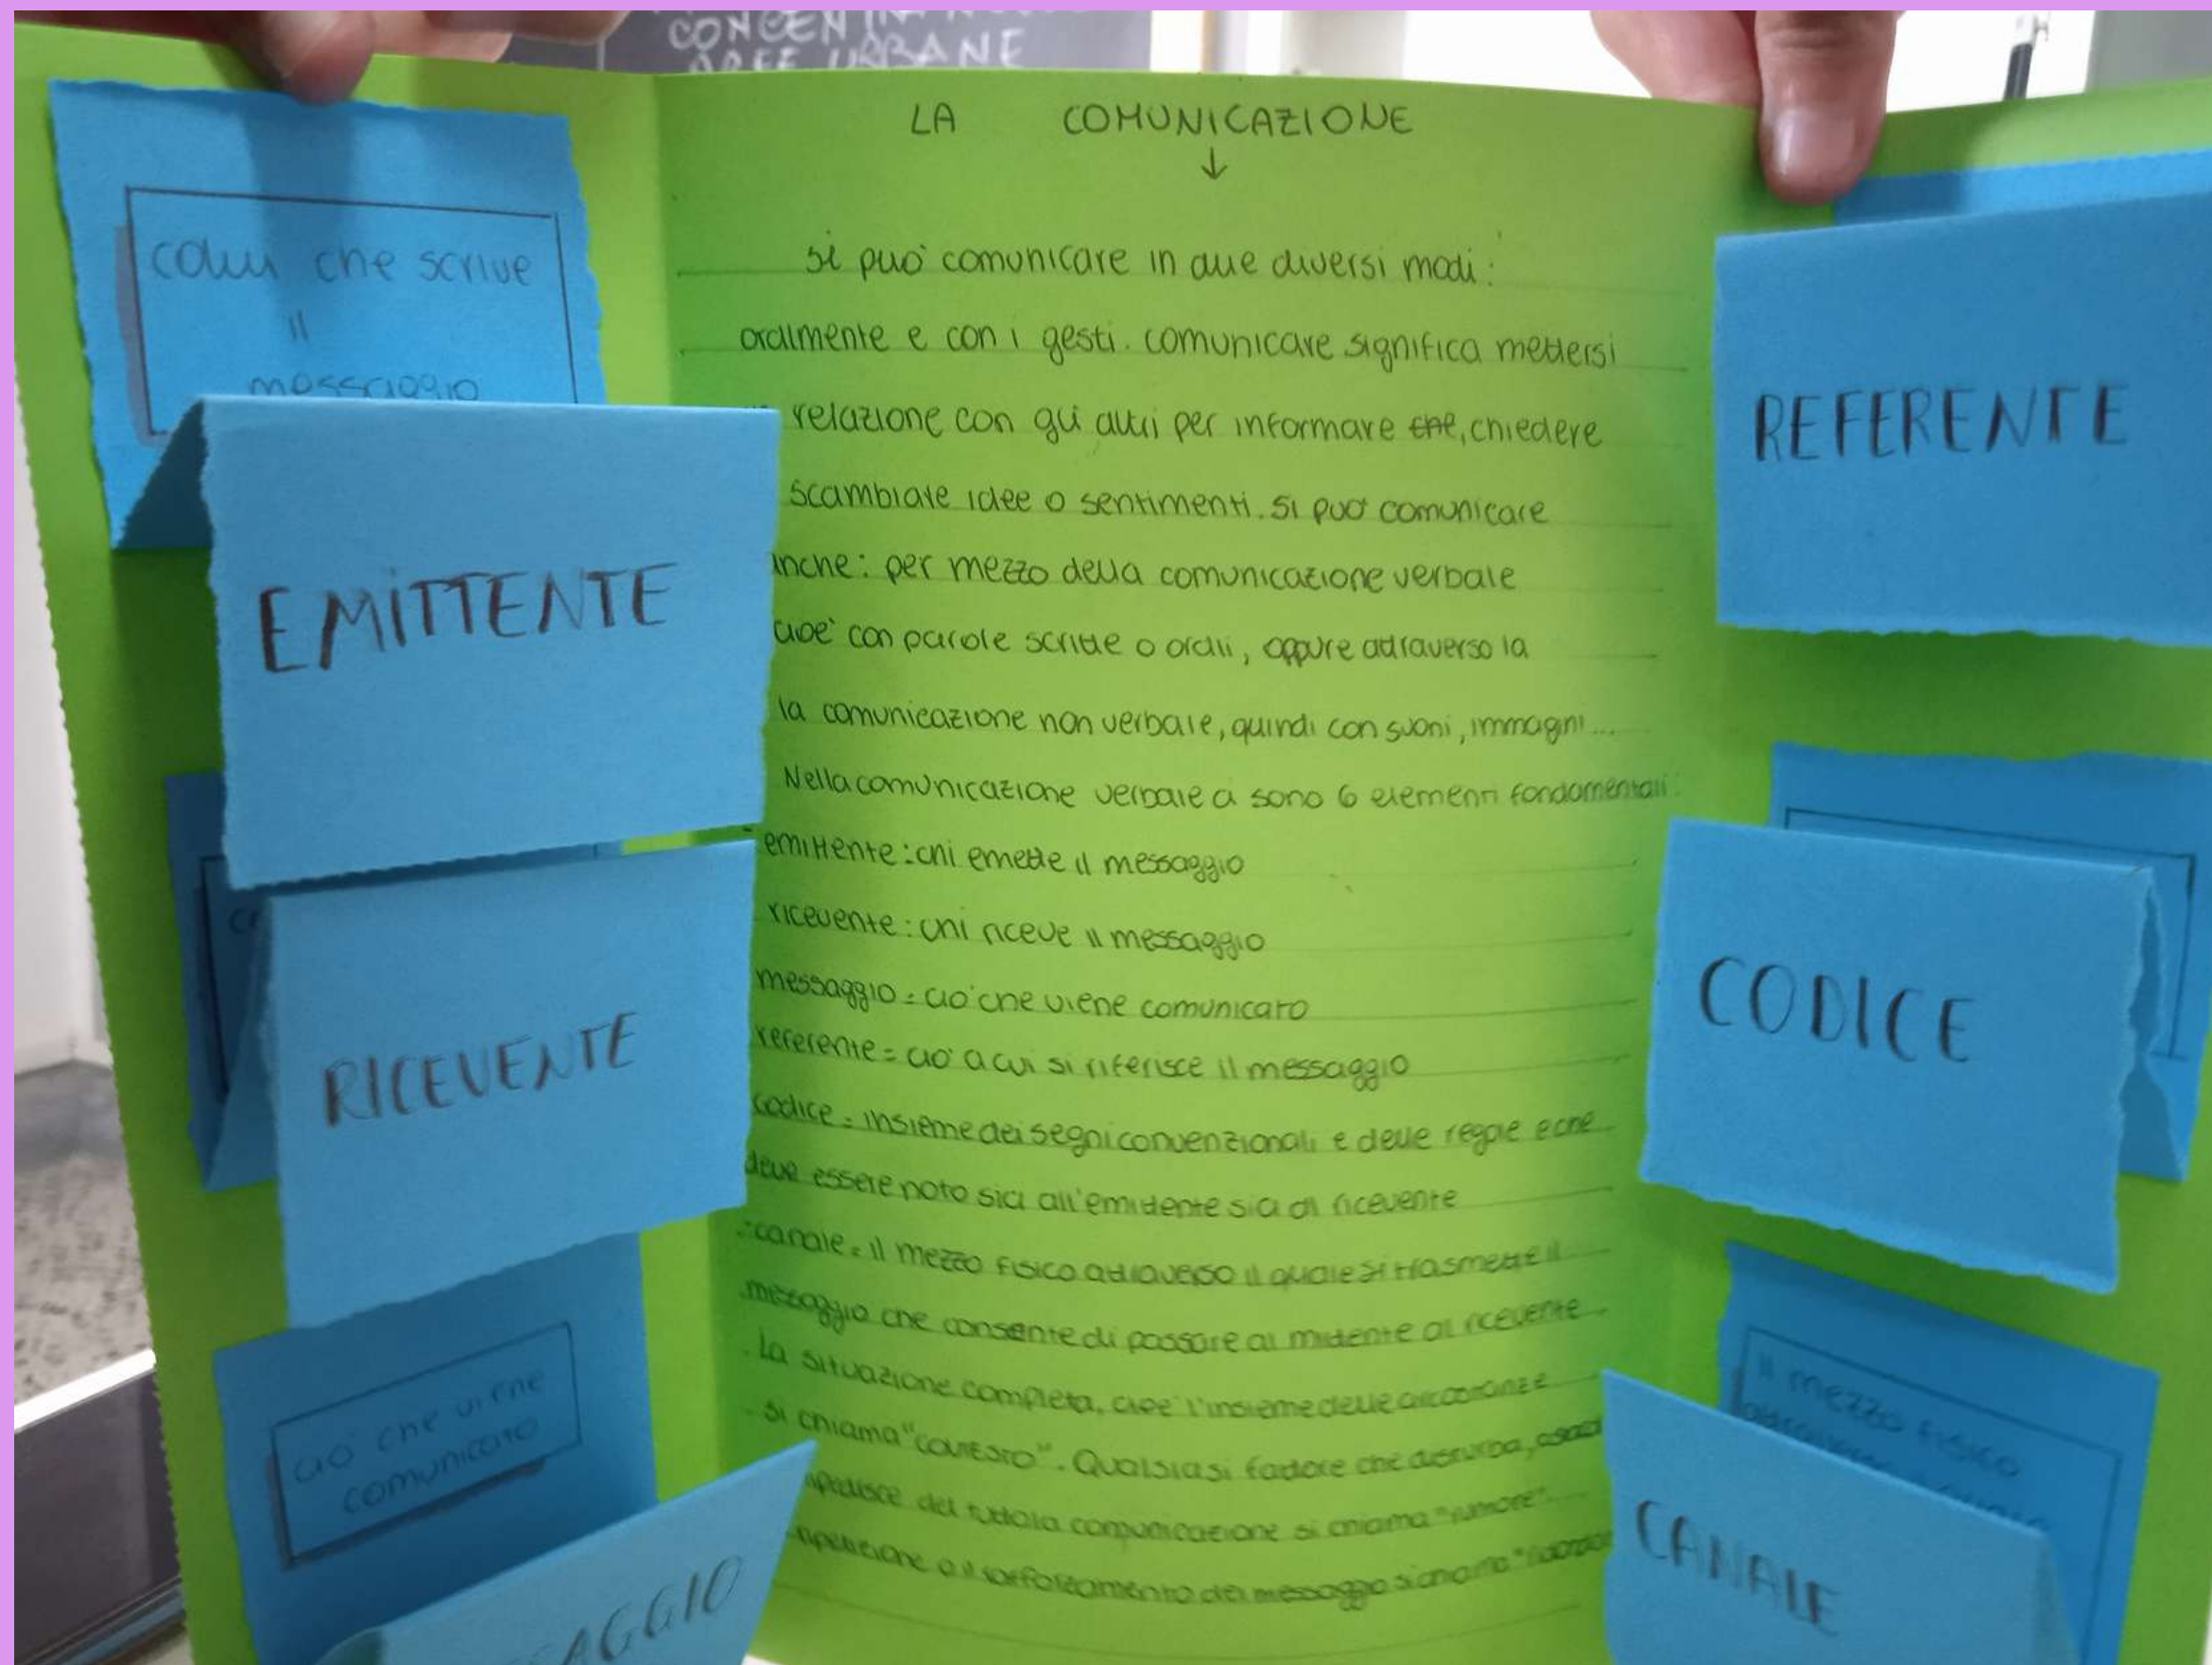 CONCENTRA
AREE URBANE
LA COMUNICAZIONE
↓
si può comunicare in due diversi modi:
oralmente e con i gesti. comunicare significa mettersi
relazione con gli altri per informare che, chiedere
scambiare idee o sentimenti. Si può comunicare
anche: per mezzo della comunicazione verbale
cioè con parole scritte o orali, oppure attraverso la
la comunicazione non verbale, quindi con suoni, immagni...
Nella comunicazione verbale ci sono 6 elementi fondamentali:
- emittente: chi emette il messaggio
ricevente: chi riceve il messaggio
messaggio = ciò che viene comunicato
referente = ciò a cui si riferisce il messaggio
codice = insieme dei segni convenzionali e delle regole e che
deve essere noto sia all'emittente sia al ricevente
- canale = il mezzo fisico attraverso il quale si trasmette il
messaggio che consente di passare al mittente al ricevente
La situazione completa, cioè l'insieme delle circostanze
si chiama "contesto". Qualsiasi fattore che disturba,
del tutto la comunicazione si chiama "rumore"
ripetizione o il rafforzamento del messaggio si chiama
colui che scrive
il
messaggio
EMITTENTE
RICEVENTE
ciò che viene
comunicato
AGGIO
REFERENTE
CODICE
il mezzo fisico
CANALE